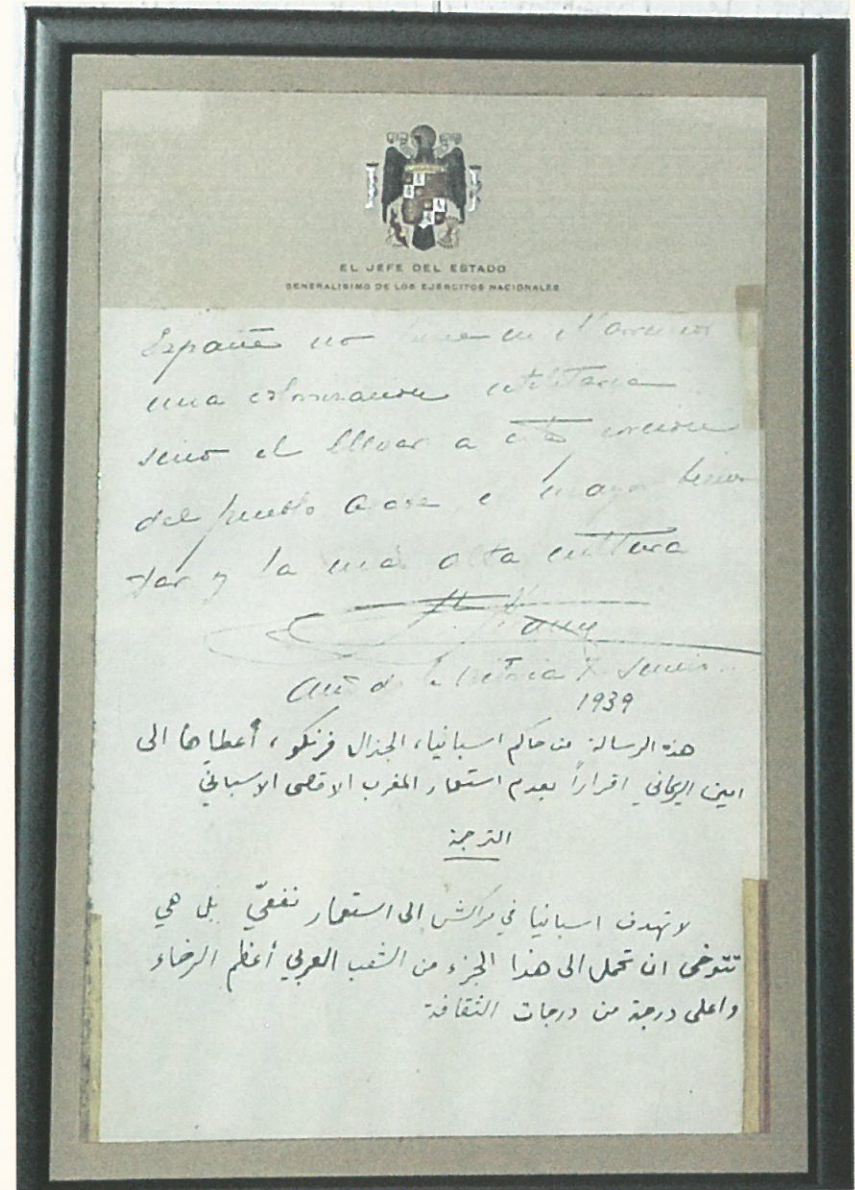 EL JEFE DEL ESTADO
GENERALISIMO DE LOS EJÉRCITOS NACIONALES
España no tiene en Marruecos
una colonizacion utilitaria
sino el llevar a esta
del pueblo mayor
tar y la mas alta cultura
F. Franco
de la Victoria
1939
هذه الرسالة من حاكم اسبانيا، الجنرال فرنكو، أعطاها الى
امين الريحاني اقراراً بعدم استعمار المغرب الاقصى الاسباني
الترجمة
لا تهدف اسبانيا في مراكش الى استعمار نفعيّ بل هي
تتوخى ان تحمل الى هذا الجزء من الشعب العربي أعظم الرخاء
واعلى درجة من درجات الثقافة